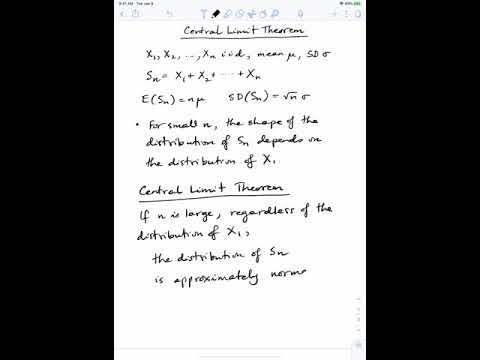 9:41 AM Tue Jan 9
Central Limit Theorem
X₁, X₂, ..., Xₙ i.i.d., mean μ, SD σ
Sₙ = X₁ + X₂ + ... + Xₙ
E(Sₙ) = nμ SD(Sₙ) = √n σ
• For small n, the shape of the
distribution of Sₙ depends on
the distribution of X₁
Central Limit Theorem
If n is large, regardless of the
distribution of X₁,
the distribution of Sₙ
is approximately norma